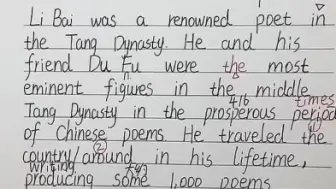 Li Bai was a renowned poet in
the Tang Dynasty. He and his
friend Du Fu were the most
eminent figures in the middle
416 times
Tang Dynasty in the prosperous period
of Chinese poems. He traveled the
country/around in his lifetime,
writing
producing some 1,000 poems